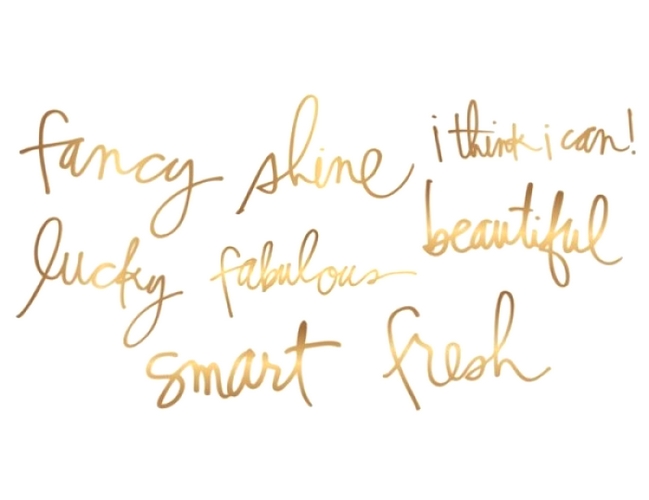 fancy shine i think i can!
lucky fabulous beautiful
smart fresh